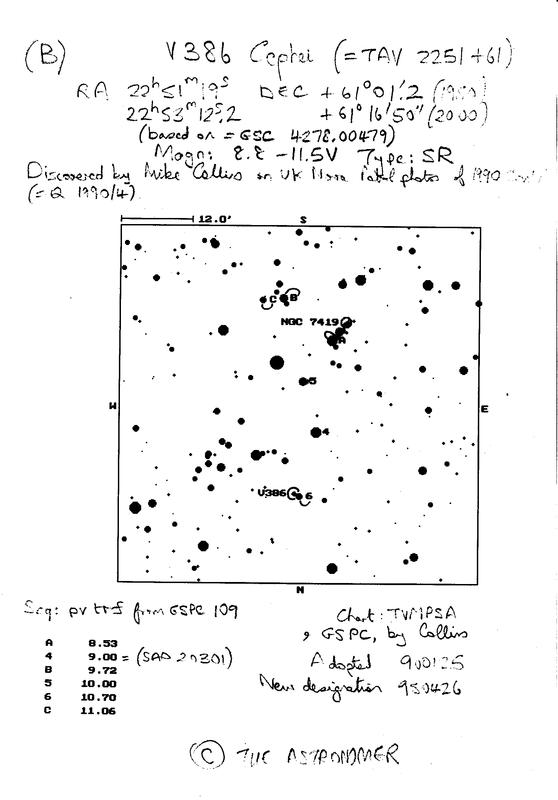 (B) V386 Cephei (= TAV 2251+61)
RA 22h 51m 19s DEC +61° 01'.2 (1950)
22h 53m 12s.2 +61° 16' 50" (2000)
(based on = GSC 4278.00479)
Magn: 8.8 - 11.5V Type: SR
Discovered by Mike Collins on UK Nova Patrol photos of 1990
(= Q 1990/4)
12.0' S
C B
NGC 7419
A
5
W E
4
V386 6
N
Seq: pv trf from GSPC 109
A 8.53
4 9.00 = (SAO 20301)
B 9.72
5 10.00
6 10.70
C 11.06
Chart: TVMPSA
, GSPC, by Collins
Adopted 900125
New designation 950426
(C) THE ASTRONOMER